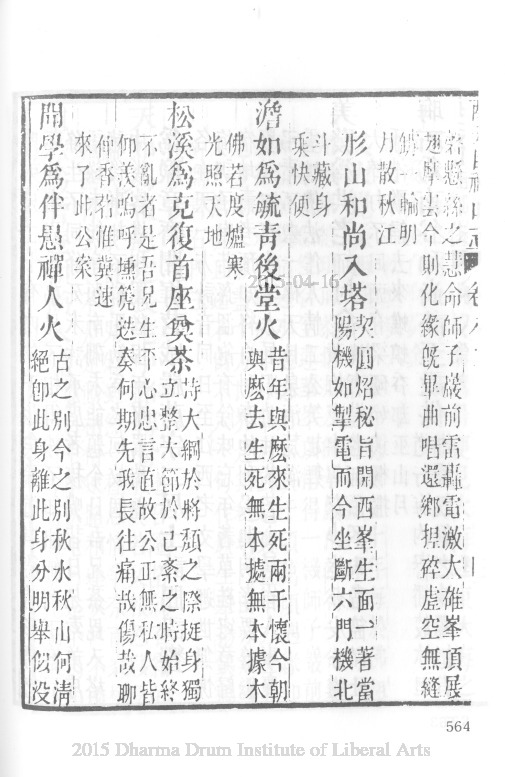 若懸絲之慧命師子巖前雷轟電激大碓峯頂展
翅摩雲今則化緣既畢曲唱還鄉捏碎虛空無縫
鎖一輪明
月散秋江
形山和尚入塔契圓炤秘旨開西峯生面一著當
陽機如掣電而今坐斷六門機北
斗藏身
乘快便
澹如為毓青後堂火昔年與麼來生死兩千懷今朝
與麼去生死無本據無本據木
佛若度爐寒
光照天地
松溪為克復首座奠茶持大綱於將頹之際挺身獨
立整大節於已紊之時始終
不亂者是吾兄生平心忠言直故公正無私人皆
仰羨嗚呼壎箎迭奏何期先我長往痛哉傷哉聊
伸香茗惟冀速
來了此公案
開學為伴愚禪人火古之別今之別秋水秋山何清
絕卽此身離此身分明舉似没
564
2015-04-16
2015 Dharma Drum Institute of Liberal Arts